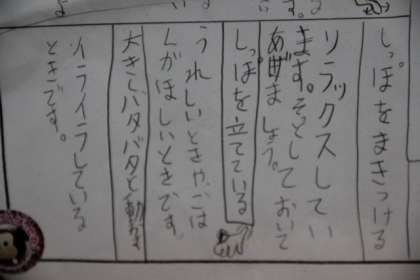 しっぽをまきつける
リラックスしてい
ます。そっとしておいて
あげましょう。
しっぽを立てている
うれしいときや、ごは
んがほしいときです。
大きくバタバタと動かす
イライラしている
ときです。